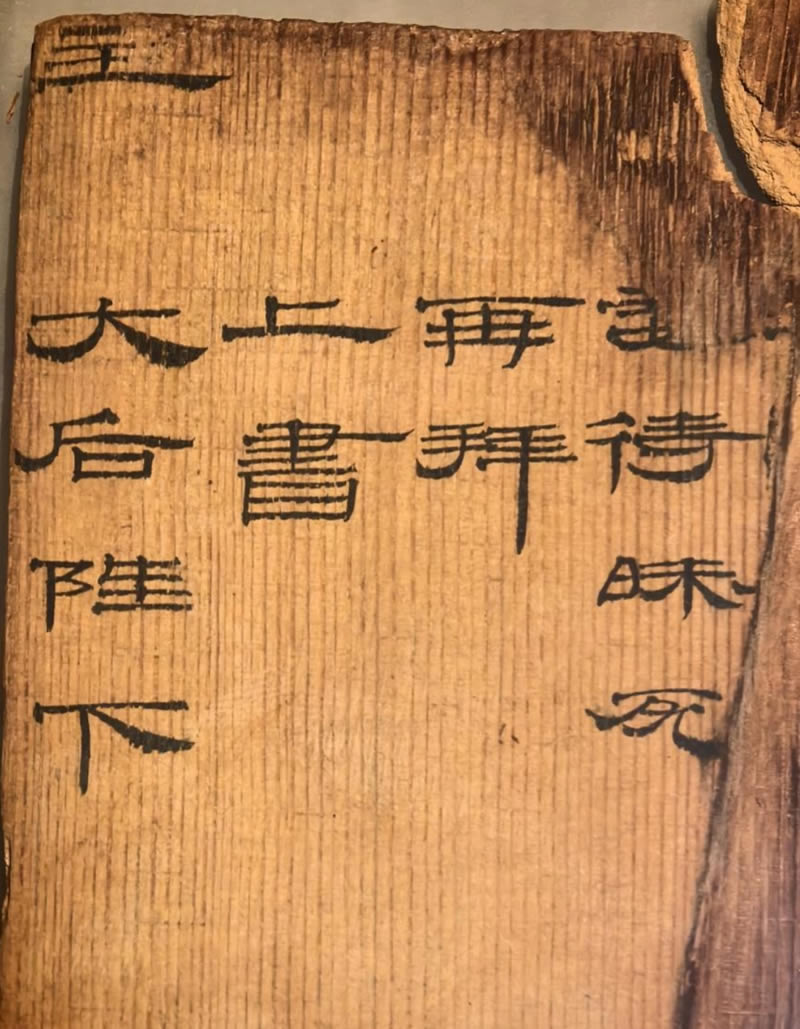 待昧死
再拜
上書
大后陛下